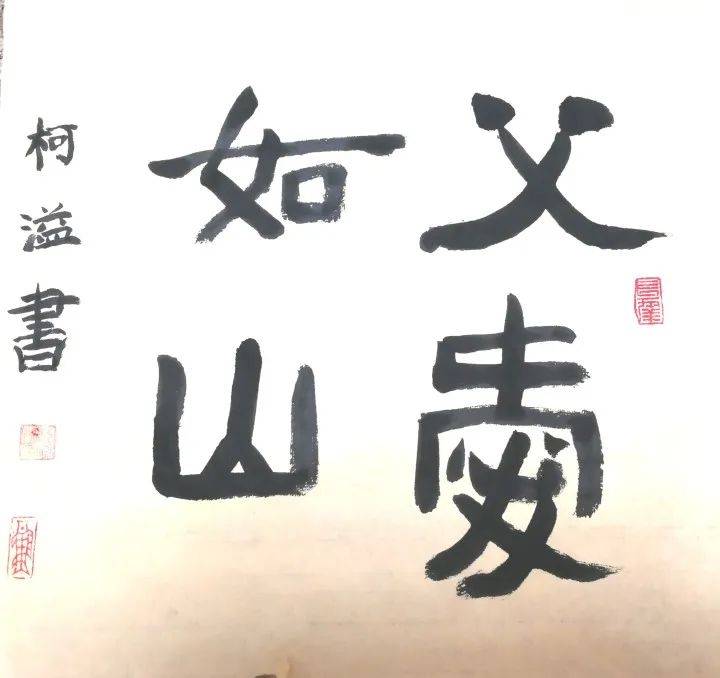 父愛
如山
柯溢書